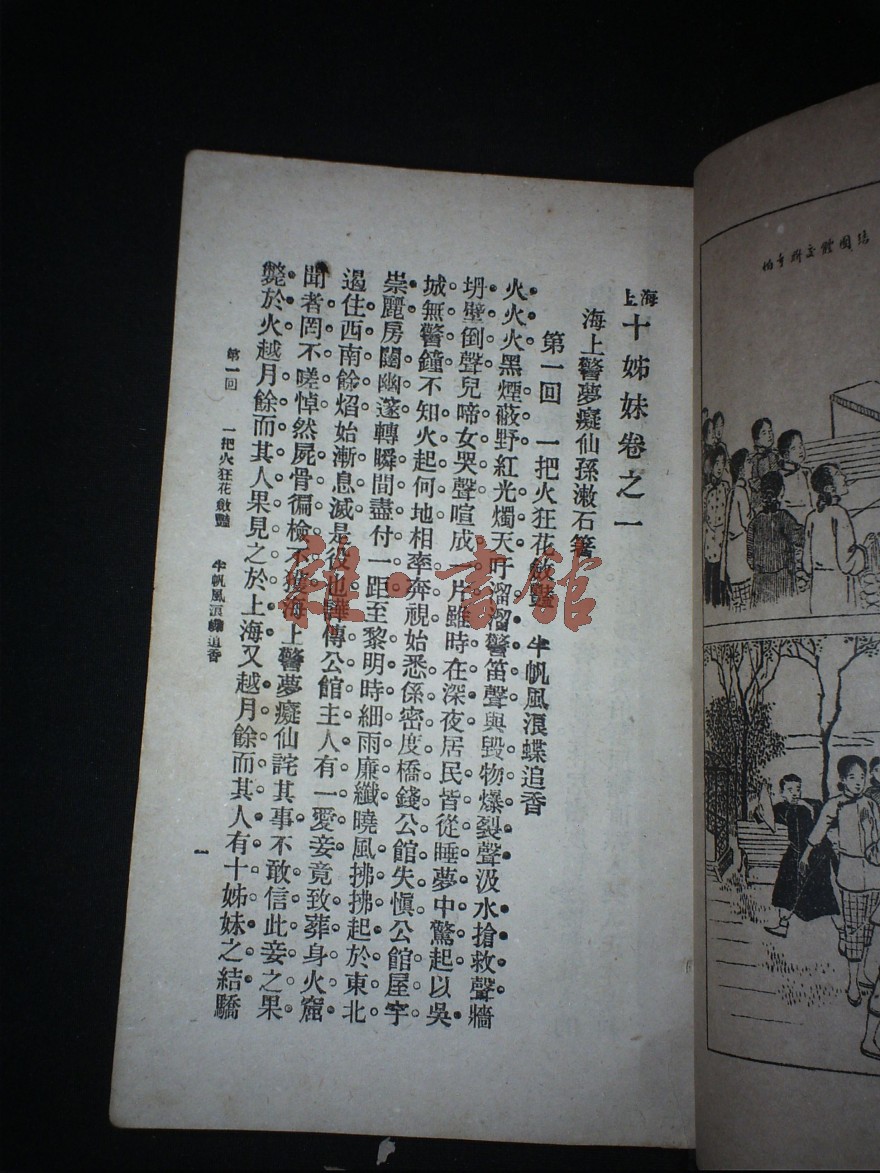 海上十姊妹卷之一
海上警夢癡仙孫漱石箸
第一回　一把火狂花斂豔　半帆風浪蝶追香
火火火黑煙蔽野紅光燭天吁溜溜警笛聲與毀物爆裂聲汲水搶救聲牆
坍壁倒聲兒啼女哭聲喧成一片雖時在深夜居民皆從睡夢中驚起以吳
城無警鐘不知火起何地相率奔視始悉係密度橋錢公館失愼公館屋宇
崇麗房闥幽邃轉瞬間盡付一距至黎明時細雨廉纖曉風拂拂起於東北
遏住西南餘焰始漸息滅是役也譁傳公館主人有一愛妾竟致葬身火窟
聞者罔不嗟悼然屍骨徧檢不獲海上警夢癡仙詫其事不敢信此妾之果
斃於火越月餘而其人果見之於上海又越月餘而其人有十姊妹之結驕
第一回　一把火狂花斂豔　半帆風浪蝶追香
一
雜·書館